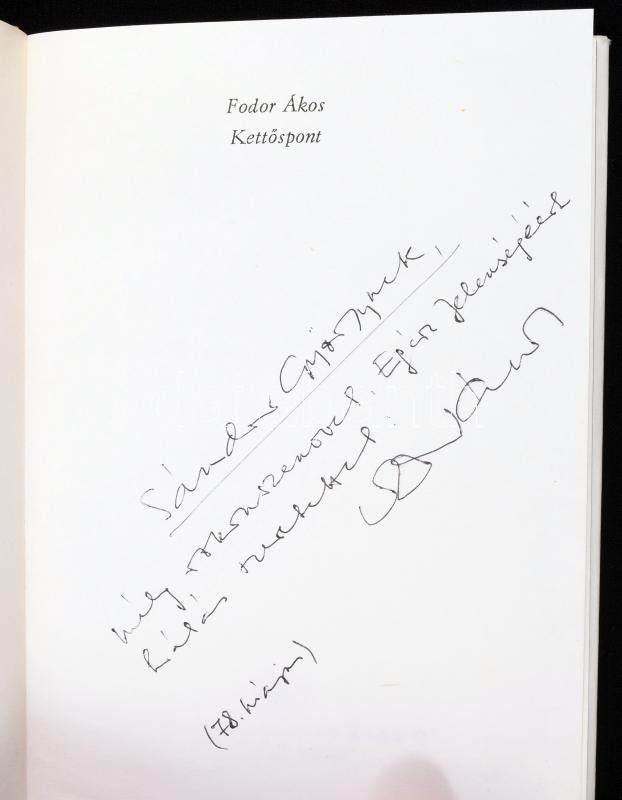 Fodor Ákos
Kettőspont
Sándor Györgynek,
mély rokonszenvvel, Egész Jelenségéért
hálás szeretettel:
Ákos
(78. május)